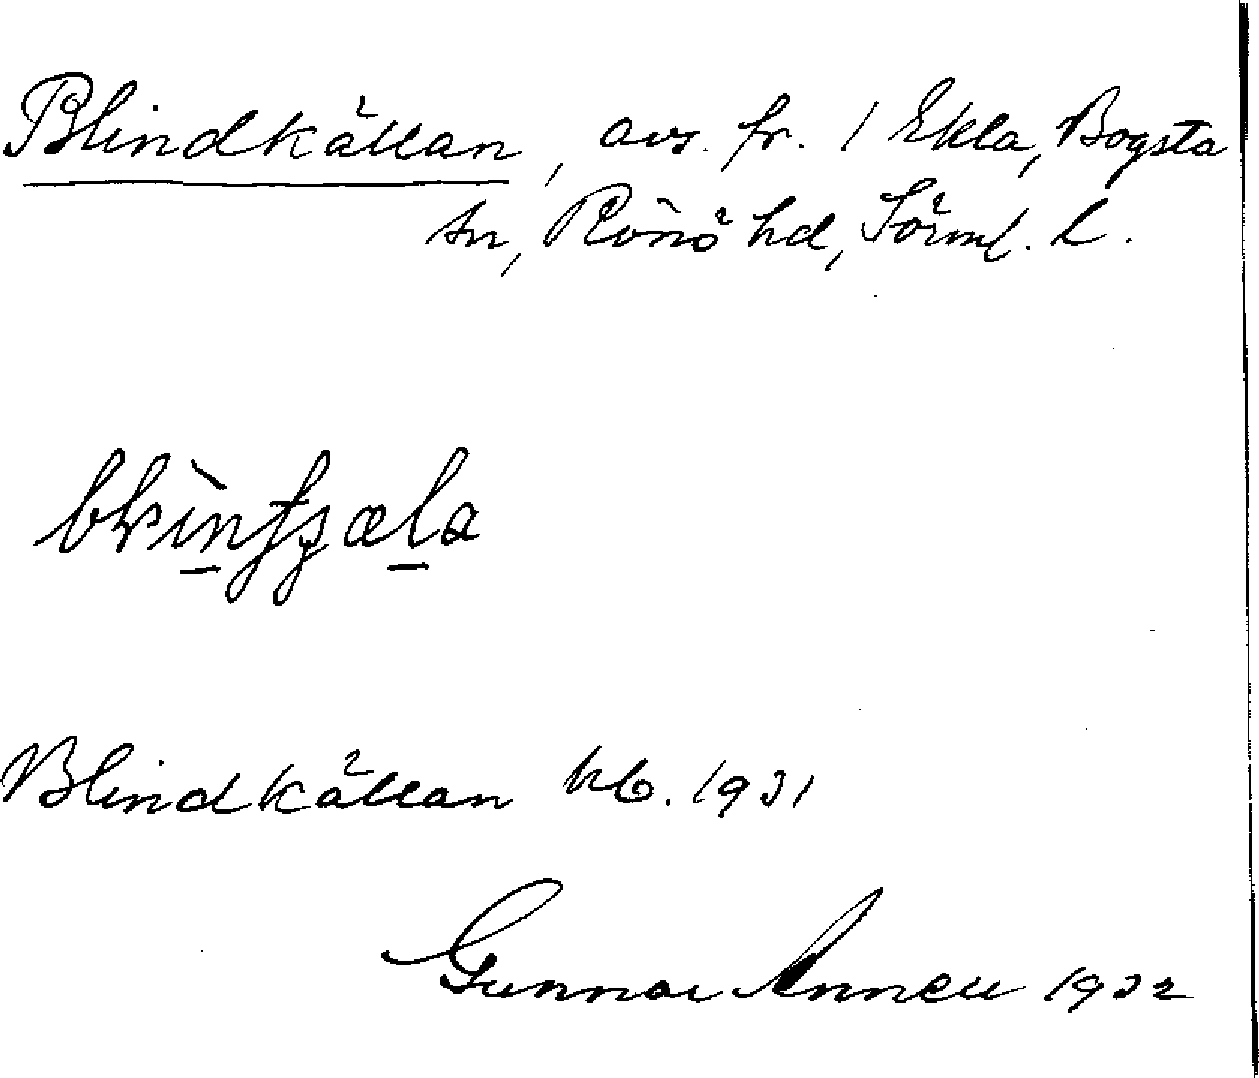 Blindkällan, avs. fr. 1 Ekla, Bogsta
sn, Rönö hd, Sörml. l.
Blindkällan kb. 1931
Gunnar Annell 1932